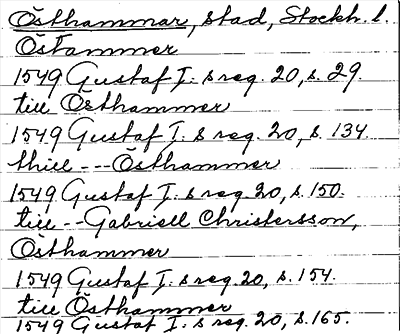 Östhammar, stad, Stockh. l.
Östammer
1549 Gustaf I:s reg. 20, s. 29.
till Östhammer
1549 Gustaf I:s reg. 20, s. 134.
thill --- Östhammer
1549 Gustaf I:s reg. 20, s. 150.
till -- Gabriell Christersson,
Östhammer
1549 Gustaf I:s reg. 20, s. 154.
till Östhammer
1549 Gustaf I:s reg. 20, s. 165.